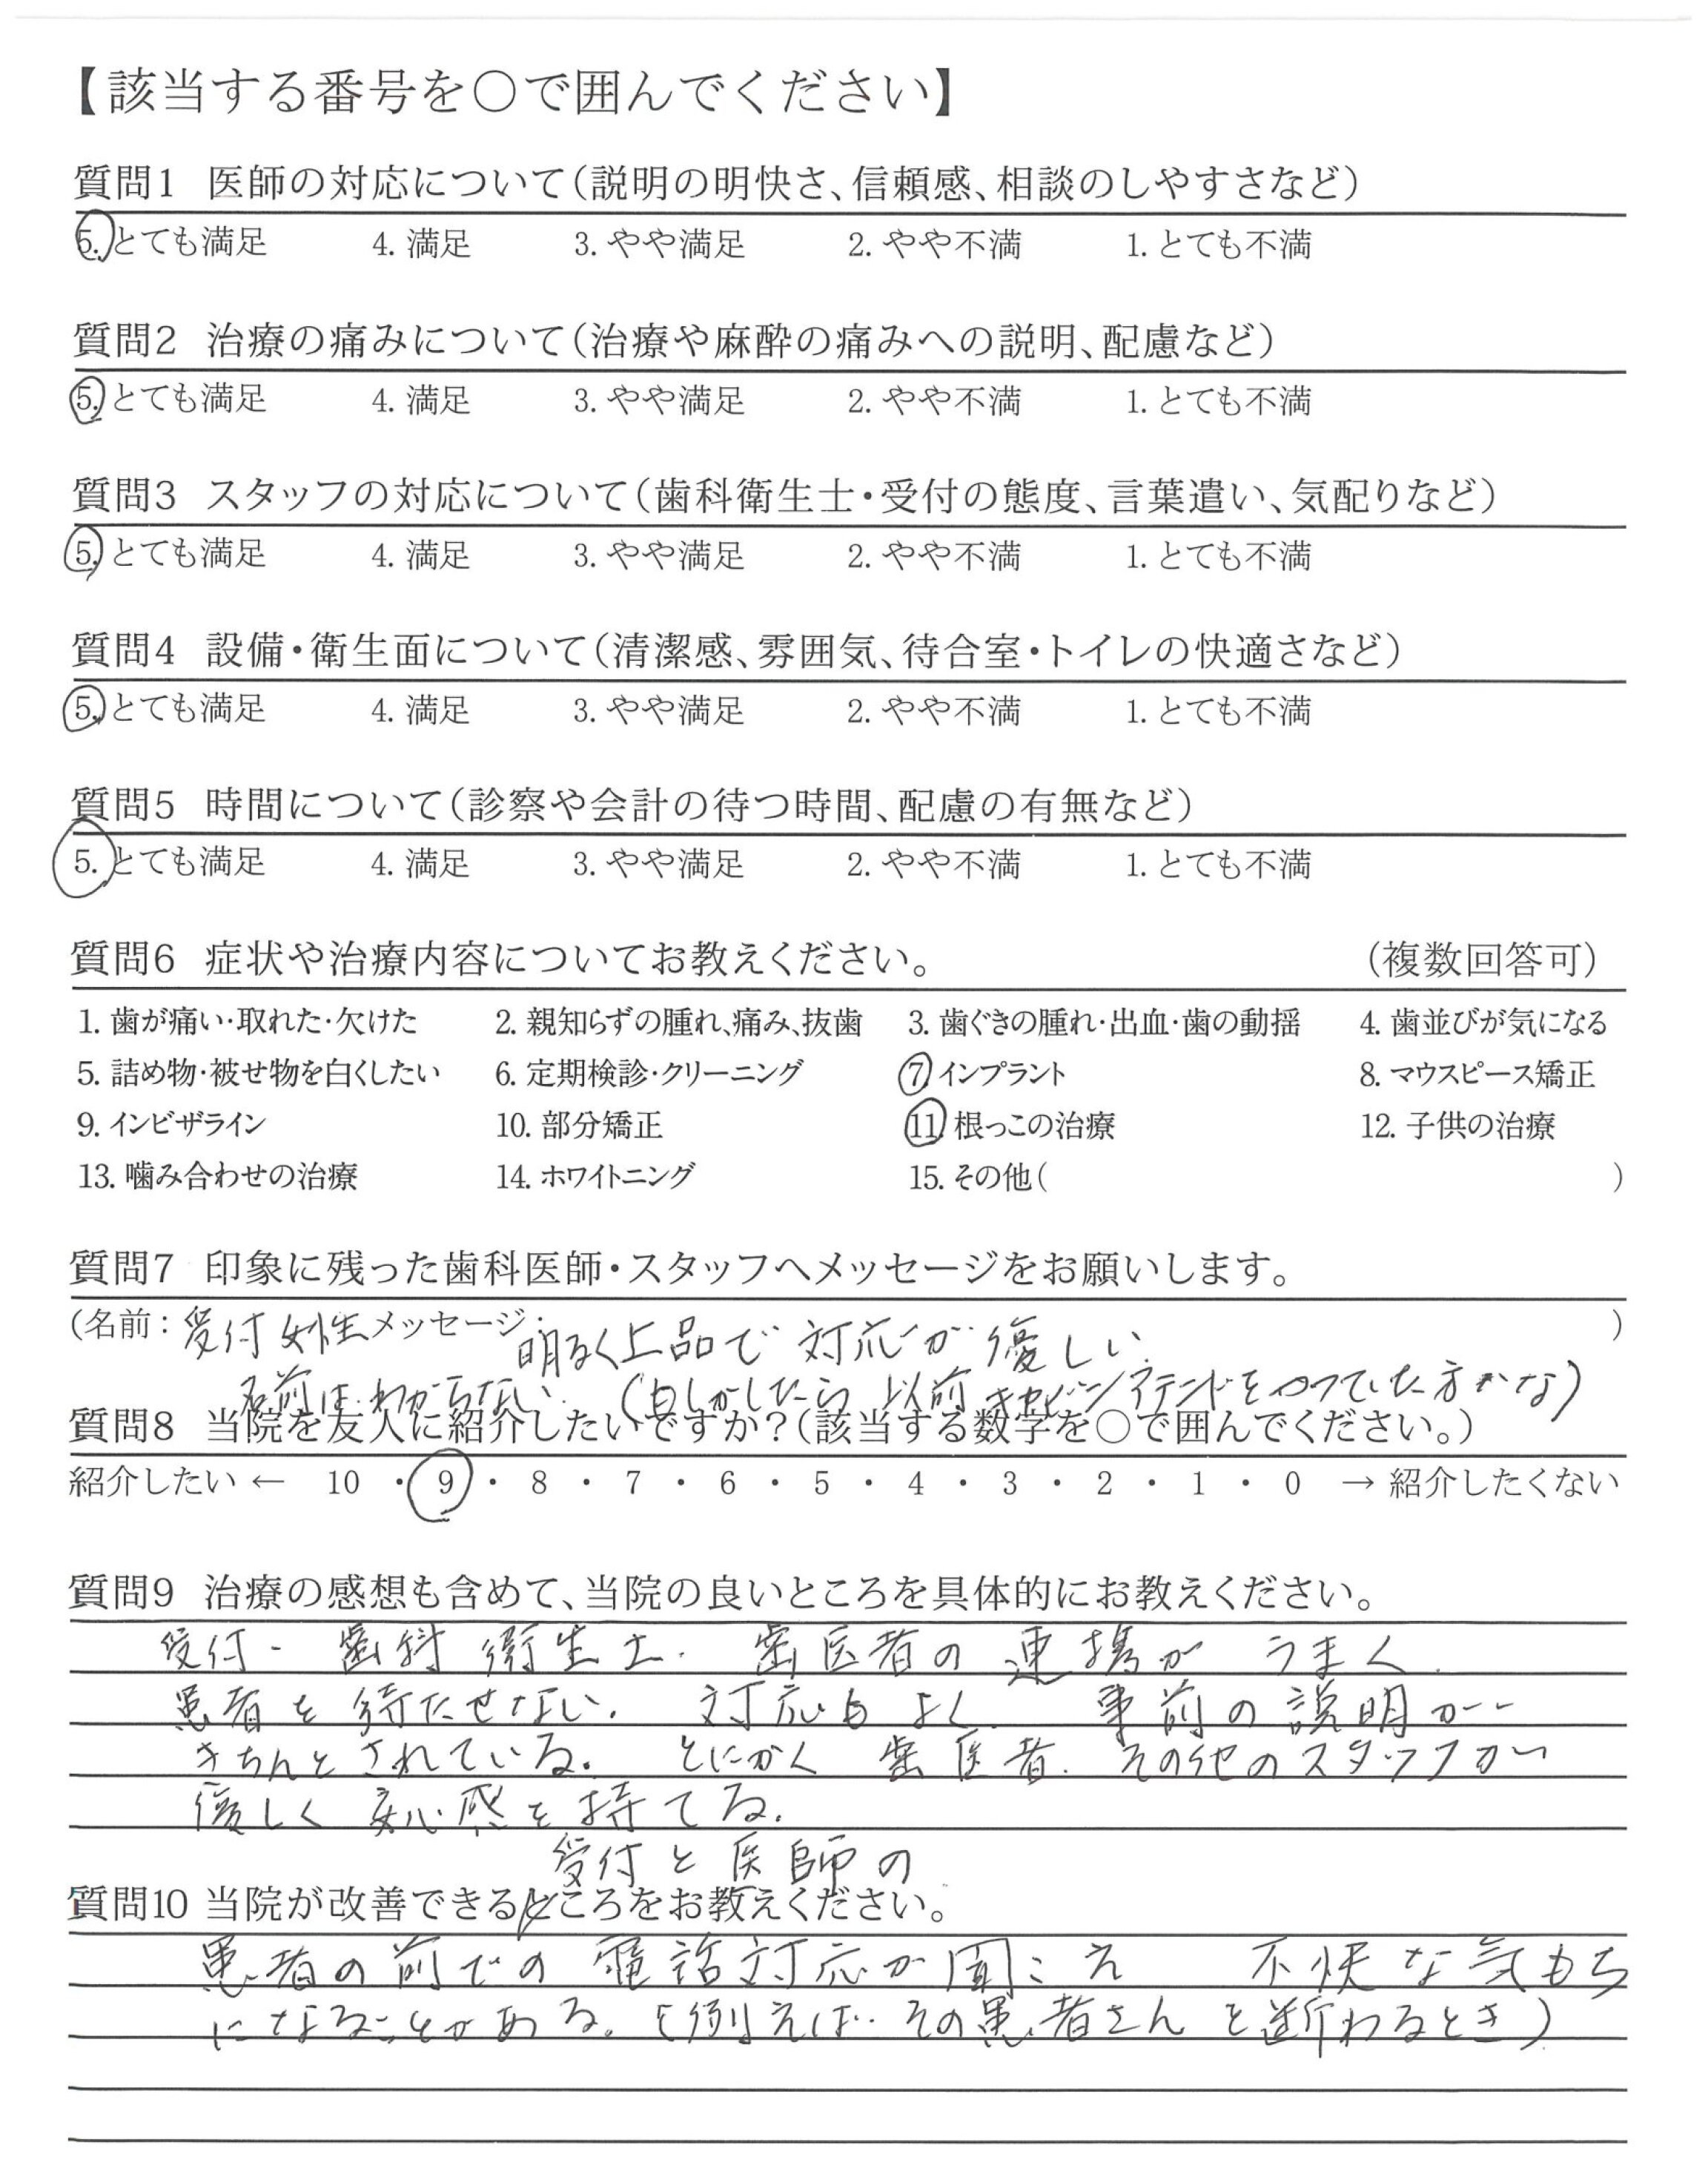 【該当する番号を○で囲んでください】
質問1 医師の対応について(説明の明快さ、信頼感、相談のしやすさなど)
5. とても満足 4. 満足 3. やや満足 2. やや不満 1. とても不満
質問2 治療の痛みについて(治療や麻酔の痛みへの説明、配慮など)
5. とても満足 4. 満足 3. やや満足 2. やや不満 1. とても不満
質問3 スタッフの対応について(歯科衛生士・受付の態度、言葉遣い、気配りなど)
5. とても満足 4. 満足 3. やや満足 2. やや不満 1. とても不満
質問4 設備・衛生面について(清潔感、雰囲気、待合室・トイレの快適さなど)
5. とても満足 4. 満足 3. やや満足 2. やや不満 1. とても不満
質問5 時間について(診察や会計の待つ時間、配慮の有無など)
5. とても満足 4. 満足 3. やや満足 2. やや不満 1. とても不満
質問6 症状や治療内容についてお教えください。 (複数回答可)
1. 歯が痛い・取れた・欠けた 2. 親知らずの腫れ、痛み、抜歯 3. 歯ぐきの腫れ・出血・歯の動揺 4. 歯並びが気になる
5. 詰め物・被せ物を白くしたい 6. 定期検診・クリーニング 7. インプラント 8. マウスピース矯正
9. インビザライン 10. 部分矯正 11. 根っこの治療 12. 子供の治療
13. 噛み合わせの治療 14. ホワイトニング 15. その他( )
質問7 印象に残った歯科医師・スタッフへメッセージをお願いします。
(名前: 受付女性 メッセージ: 明るく上品で対応が優しい )
名前はわからない (もしかしたら以前キャビンアテンドをやっていた方かな)
質問8 当院を友人に紹介したいですか?(該当する数字を○で囲んでください。)
紹介したい ← 10 ・ 9 ・ 8 ・ 7 ・ 6 ・ 5 ・ 4 ・ 3 ・ 2 ・ 1 ・ 0 → 紹介したくない
質問9 治療の感想も含めて、当院の良いところを具体的にお教えください。
受付・歯科衛生士・歯医者の連携がうまく
患者を待たせない。対応もよく、事前の説明が
きちんとされている。とにかく歯医者、その他のスタッフが
優しく安心感を持てる。
受付と医師の
質問10 当院が改善できるところをお教えください。
患者の前での電話対応が聞こえ 不快な気もち
になることがある。(例えば その患者さんを断わるとき)